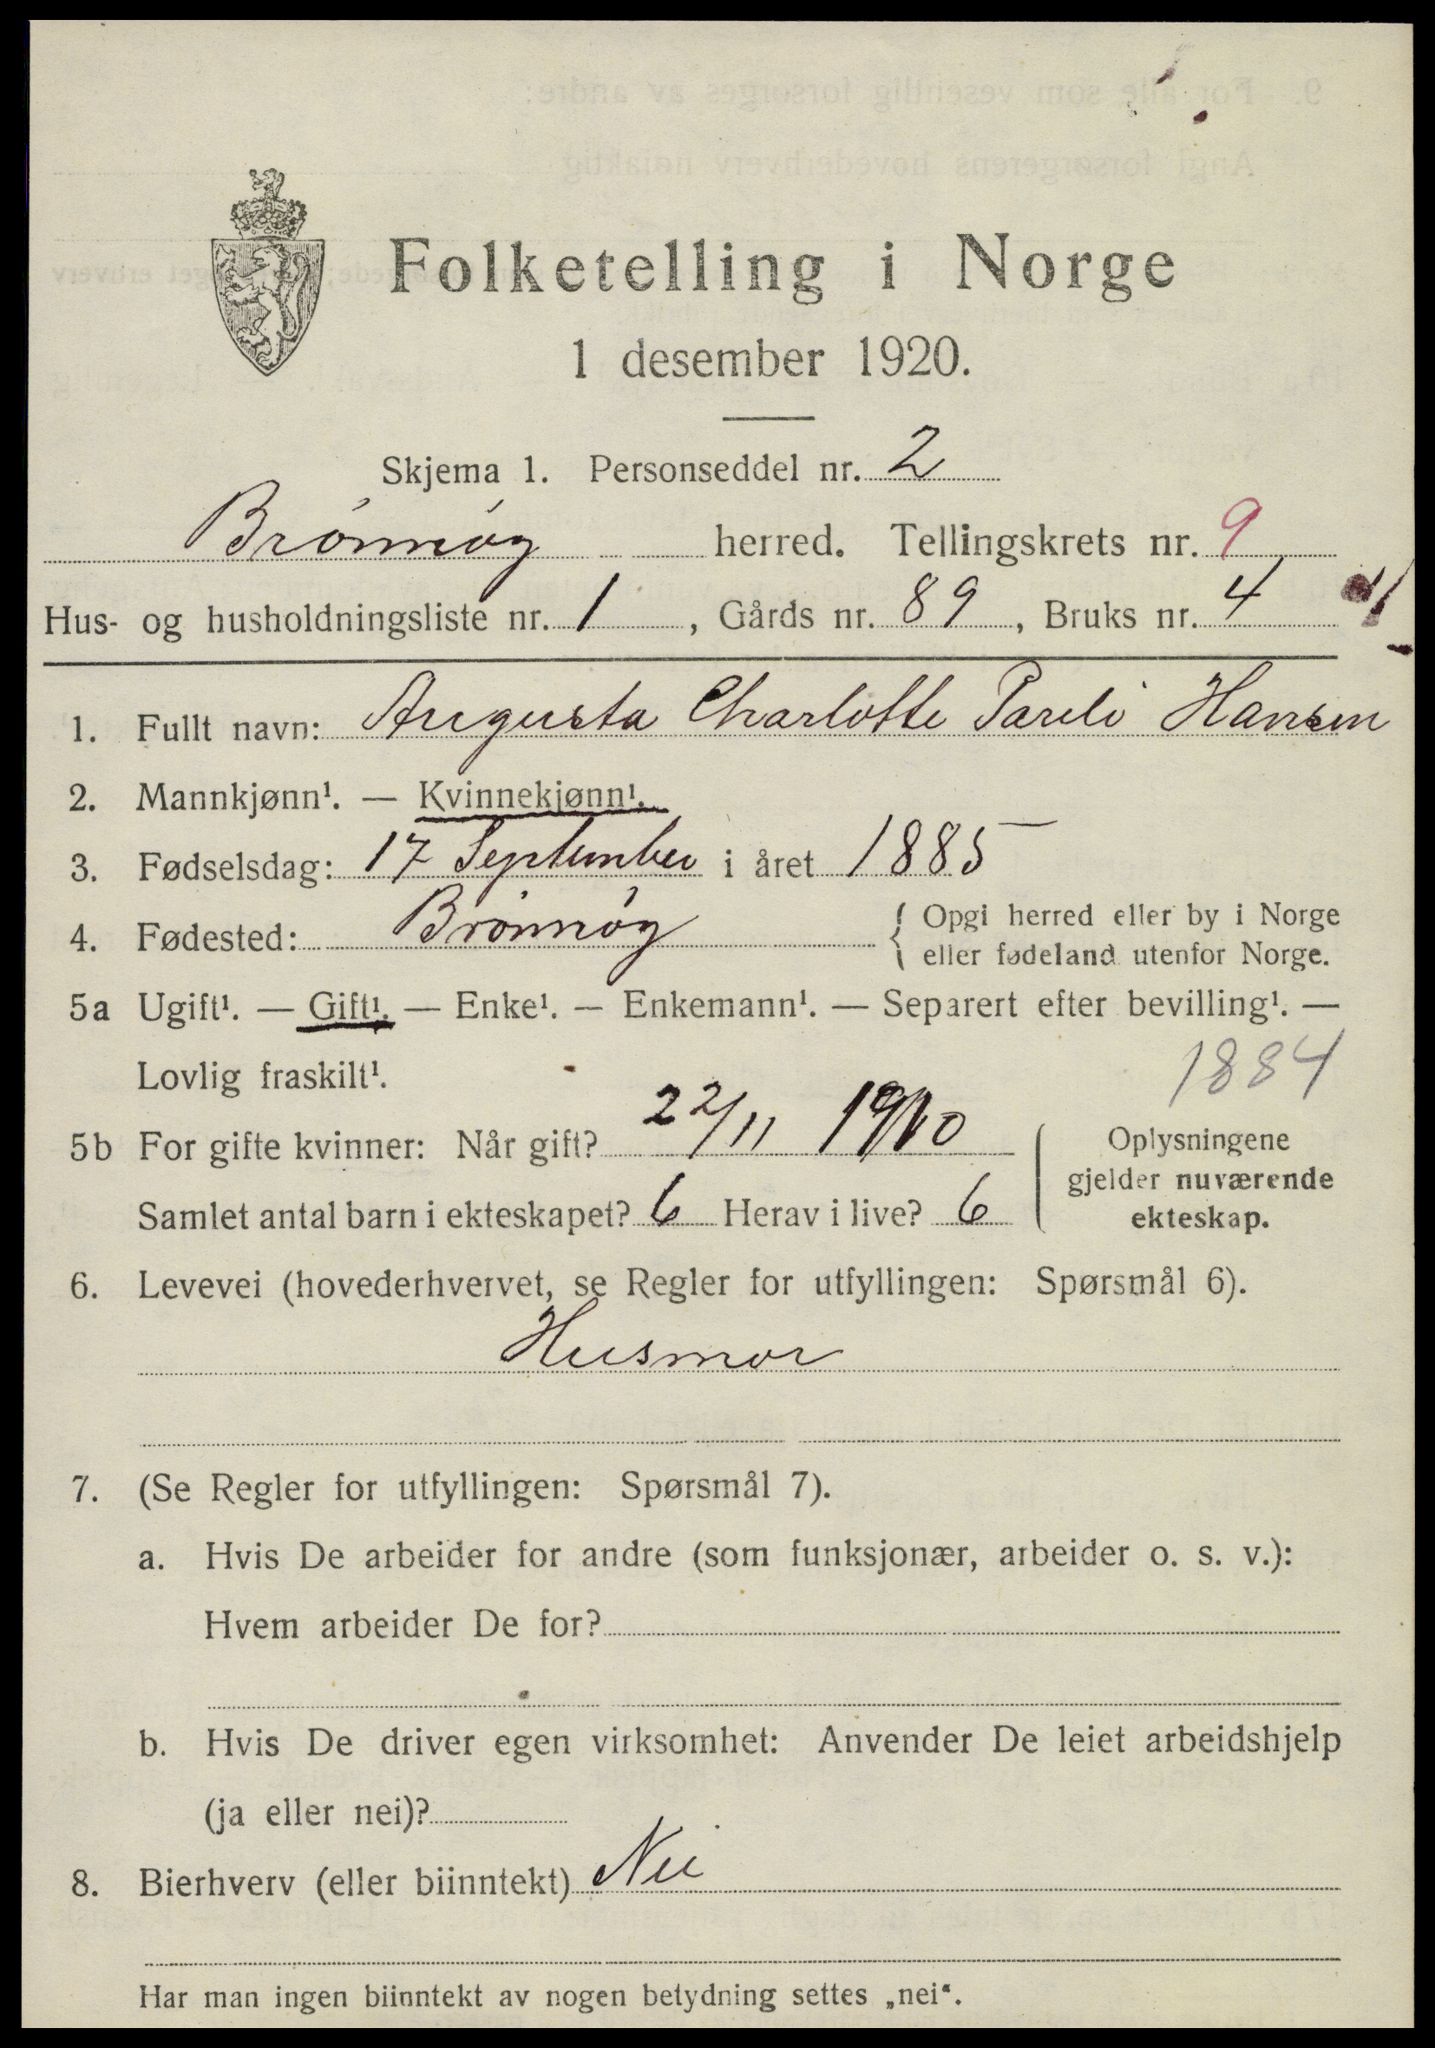 Folketelling i Norge
1 desember 1920.
Skjema 1. Personseddel nr. 2
Brønnøy herred. Tellingskrets nr. 9
Hus- og husholdningsliste nr. 1, Gårds nr. 89, Bruks nr. 4
1. Fullt navn: Augusta Charlotte Pareli Hansen
2. Mannkjønn¹. — Kvinnekjønn¹.
3. Fødselsdag: 17 September i året 1885
4. Fødested: Brønnøy { Opgi herred eller by i Norge
eller fødeland utenfor Norge.
5a Ugift¹. — Gift¹. — Enke¹. — Enkemann¹. — Separert efter bevilling¹. —
Lovlig fraskilt¹.
1884
5b For gifte kvinner: Når gift? 22/11 1910
Samlet antal barn i ekteskapet? 6 Herav i live? 6
Oplysningene
gjelder nuværende
ekteskap.
6. Levevei (hovederhvervet, se Regler for utfyllingen: Spørsmål 6).
Husmor
7. (Se Regler for utfyllingen: Spørsmål 7).
a. Hvis De arbeider for andre (som funksjonær, arbeider o. s. v.):
Hvem arbeider De for?
b. Hvis De driver egen virksomhet: Anvender De leiet arbeidshjelp
(ja eller nei)?
8. Bierhverv (eller biinntekt) Nei
Har man ingen biinntekt av nogen betydning settes „nei“.